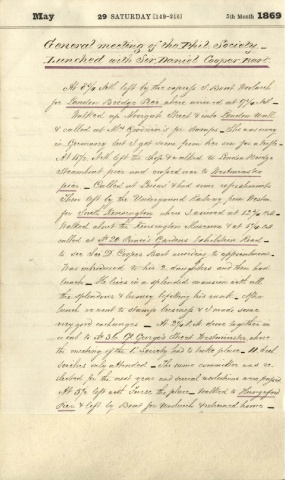 May 29 SATURDAY [149-216] 5th Month 1869
General meeting of the Phil. Society_
Lunched with Sir Daniel Cooper Bart.
At 8¼ left by the express S. Boat Woolwich
for London Bridge Pier where arrived at
Walked up Moorgate Street & into London Wall
& called at Mrs for Stamps_ She was away
in Germany but I got some from her son for a trifle_
At left the shop & walked to London Bridge
Steamboat pier and crossed over to Westminster
pier_ Called at & had some refreshments
Then left by the Underground Railway from Westm.
for South Kensington where I arrived at
Walked about the Kensington Museum & at
called at No 20 Prince's Gardens Exhibition Road_
to see Sir D. Cooper Bart according to appointment.
Was introduced to his 2 daughters and then had
lunch_ He lives in a splendid mansion with all
the splendour & luxury befitting his rank_ After
lunch we went to stamp business & I made some
very good exchanges_ At we drove together in
to No 36 Gt George's Street Westminster where
the meeting of the P. Society had to take place_
only attended_ The same committee was re-
elected for the next year and several resolutions were passed
At left with the place_ walked to Hungerford
Pier & left by Boat for Woolwich & returned home_